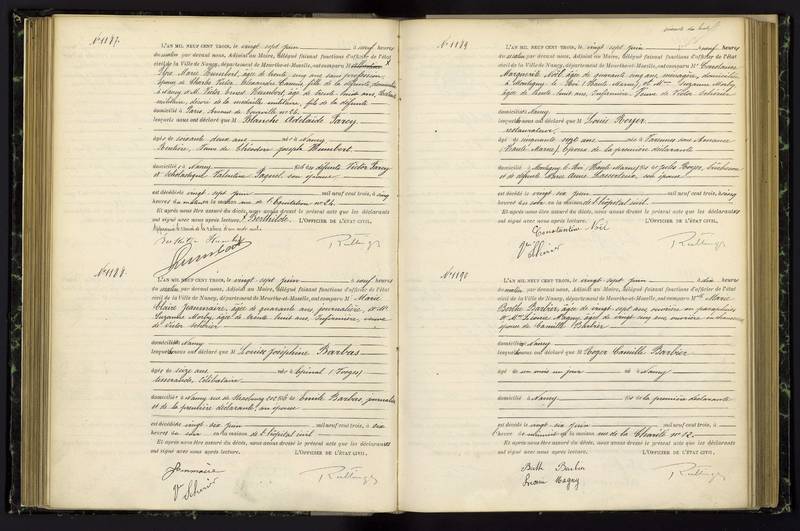 N° 1187.
L'AN MIL NEUF CENT TROIS, le vingt-sept juin à neuf heures
du matin par devant nous, Adjoint au Maire, délégué faisant fonctions d'officier de l'état
civil de la Ville de Nancy, département de Meurthe-et-Moselle, ont comparu M
Marie Humbert, âgée de trente cinq ans sans profession
épouse de Charles Victor Alexandre fille de la défunte, domiciliée
à Nancy et M. Victor Ernest Humbert, âgé de trente-huit ans,
militaire, décoré de la médaille militaire, fils de la défunte
domicilié à Paris avenue de N° 26.
lesquels nous ont déclaré que M Blanche Adélaïde Parcy
âgée de soixante deux ans née à Nancy
Rentière, Veuve de Théodore Joseph Humbert.
domiciliée à Nancy fille des défunts Victor Parcy
et Scholastique Valentine son épouse
est décédée vingt-sept juin mil neuf cent trois, à cinq
heures du matin en la maison rue de l'Equitation n° 24.
Et après nous être assuré du décès, nous avons dressé le présent acte que les déclarants
ont signé avec nous après lecture. L'OFFICIER DE L'ÉTAT CIVIL.
Humbert
N° 1188.
L'AN MIL NEUF CENT TROIS, le vingt-sept juin à neuf heures
du matin par devant nous, Adjoint au Maire, délégué faisant fonctions d'officier de l'état
civil de la Ville de Nancy, département de Meurthe-et-Moselle, ont comparu M Marie
Claire Jeanmaire, âgée de quarante ans journalière, et Me
Suzanne Morby, âgée de trente huit ans, Infirmière, veuve
de Victor
domiciliées Nancy
lesquelles nous ont déclaré que M Louise Joséphine Barbas
âgée de seize ans née à Epinal (Vosges)
tisserande, Célibataire
domiciliée à Nancy rue de Strasbourg fille de Emile Barbas, journalier
et de la première déclarante, son épouse
est décédée vingt-six juin mil neuf cent trois, à six
heures du soir en la maison de l'hôpital civil
Et après nous être assuré du décès, nous avons dressé le présent acte que les déclarants
ont signé avec nous après lecture. L'OFFICIER DE L'ÉTAT CIVIL.
N° 1189
L'AN MIL NEUF CENT TROIS, le vingt-sept juin à neuf heures
du matin par devant nous, Adjoint au Maire, délégué faisant fonctions d'officier de l'état
civil de la Ville de Nancy, département de Meurthe-et-Moselle, ont comparu Me Constance
Marguerite Noël, âgée de quarante cinq ans, ménagère, domiciliée
à Montigny le Roi (Haute Marne), et Mme Suzanne Morby
âgée de trente huit ans, Infirmière, Veuve de Victor
domiciliée Nancy
lesquelles nous ont déclaré que M Louis Royer
restaurateur,
âgé de cinquante sept ans né à Varenne sur Amance
(Haute Marne) époux de la première déclarante
domicilié à Montigny le Roi (Haute Marne) fils de Jules Royer,
et de défunte Marie Anne son épouse
est décédé le vingt-six juin mil neuf cent trois, à cinq
heures du soir en la maison de l'hôpital civil.
Et après nous être assuré du décès, nous avons dressé le présent acte que les déclarants
ont signé avec nous après lecture. L'OFFICIER DE L'ÉTAT CIVIL.
Noël
N° 1190
L'AN MIL NEUF CENT TROIS, le vingt-sept juin à dix heures
du matin par devant nous, Adjoint au Maire, délégué faisant fonctions d'officier de l'état
civil de la Ville de Nancy, département de Meurthe-et-Moselle, ont comparu Me Marie
Berthe Barbier, âgée de vingt-sept ans ouvrière en parapluies
et Me Magny, âgée de vingt cinq ans ouvrière en chaussures
épouse de Camille Barbier
domiciliées Nancy
lesquelles nous ont déclaré que M Roger Camille Barbier
âgé de un mois un jour né à Nancy
domicilié à Nancy fils de la première déclarante
est décédé le vingt-six juin mil neuf cent trois, à
heures de en la maison rue de la Charité n° 12.
Et après nous être assuré du décès, nous avons dressé le présent acte que les déclarants
ont signé avec nous après lecture. L'OFFICIER DE L'ÉTAT CIVIL.
Berth Barbier
Magny